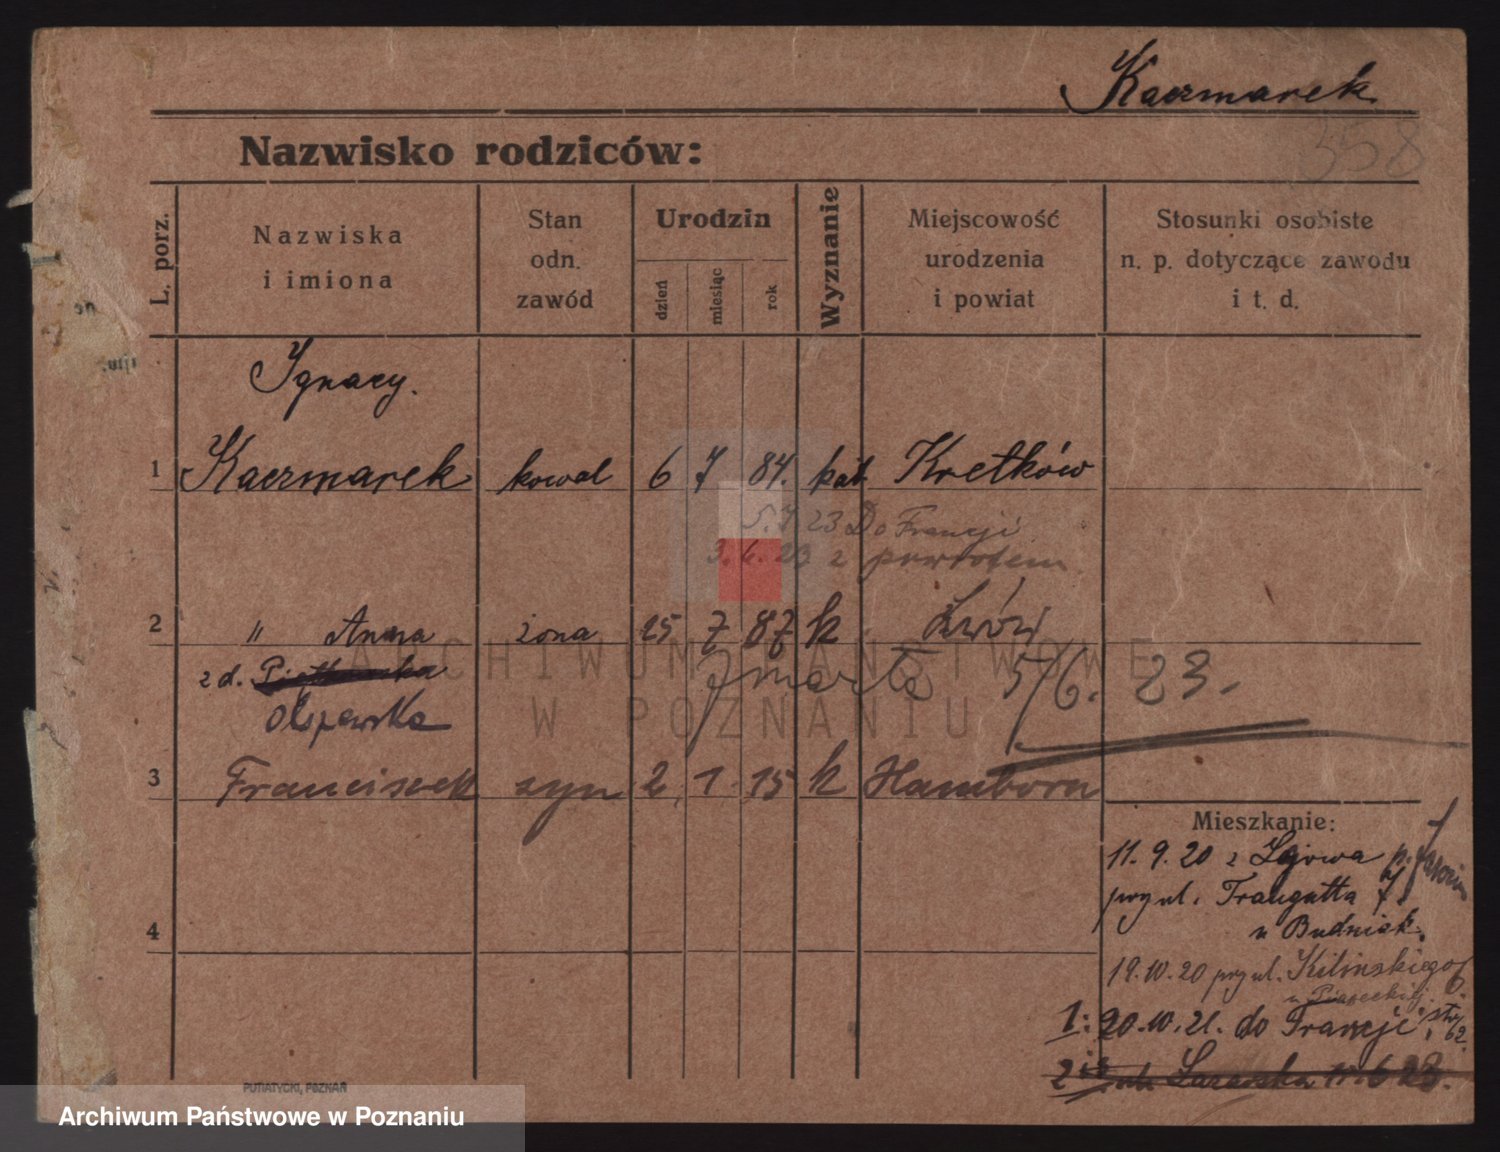 Kaczmarek
358
Nazwisko rodziców:
L. porz.
Nazwiska
i imiona
Stan
odn.
zawód
Urodzin
dzień
miesiąc
rok
Wyznanie
Miejscowość
urodzenia
i powiat
Stosunki osobiste
n. p. dotyczące zawodu
i t. d.
Ignacy.
1 Kaczmarek kowal 6 7 84. kat. Kretków
5.7 23 Do Francji
3. 6. 23 z powrotem.
2 " Anna żona 25 7 87 k Lwów
z d.
Olszewska
zmarła 5/6. 23.
3 Franciszek syn 2. 1. 15 k Hamborn
4
Mieszkanie:
11. 9. 20 z Lgowa p. Jarocin
przy ul. Traugutta 7.
u Budniak.
19.10.20 przy ul. Kilińskiego 6.
u Piaseckiej.
1: 20.10.21. do Francji.
2 ul. 11.6 23.
ARCHIWUM PAŃSTWOWE
W POZNANIU
PUTIATYCKI, POZNAŃ
Archiwum Państwowe w Poznaniu